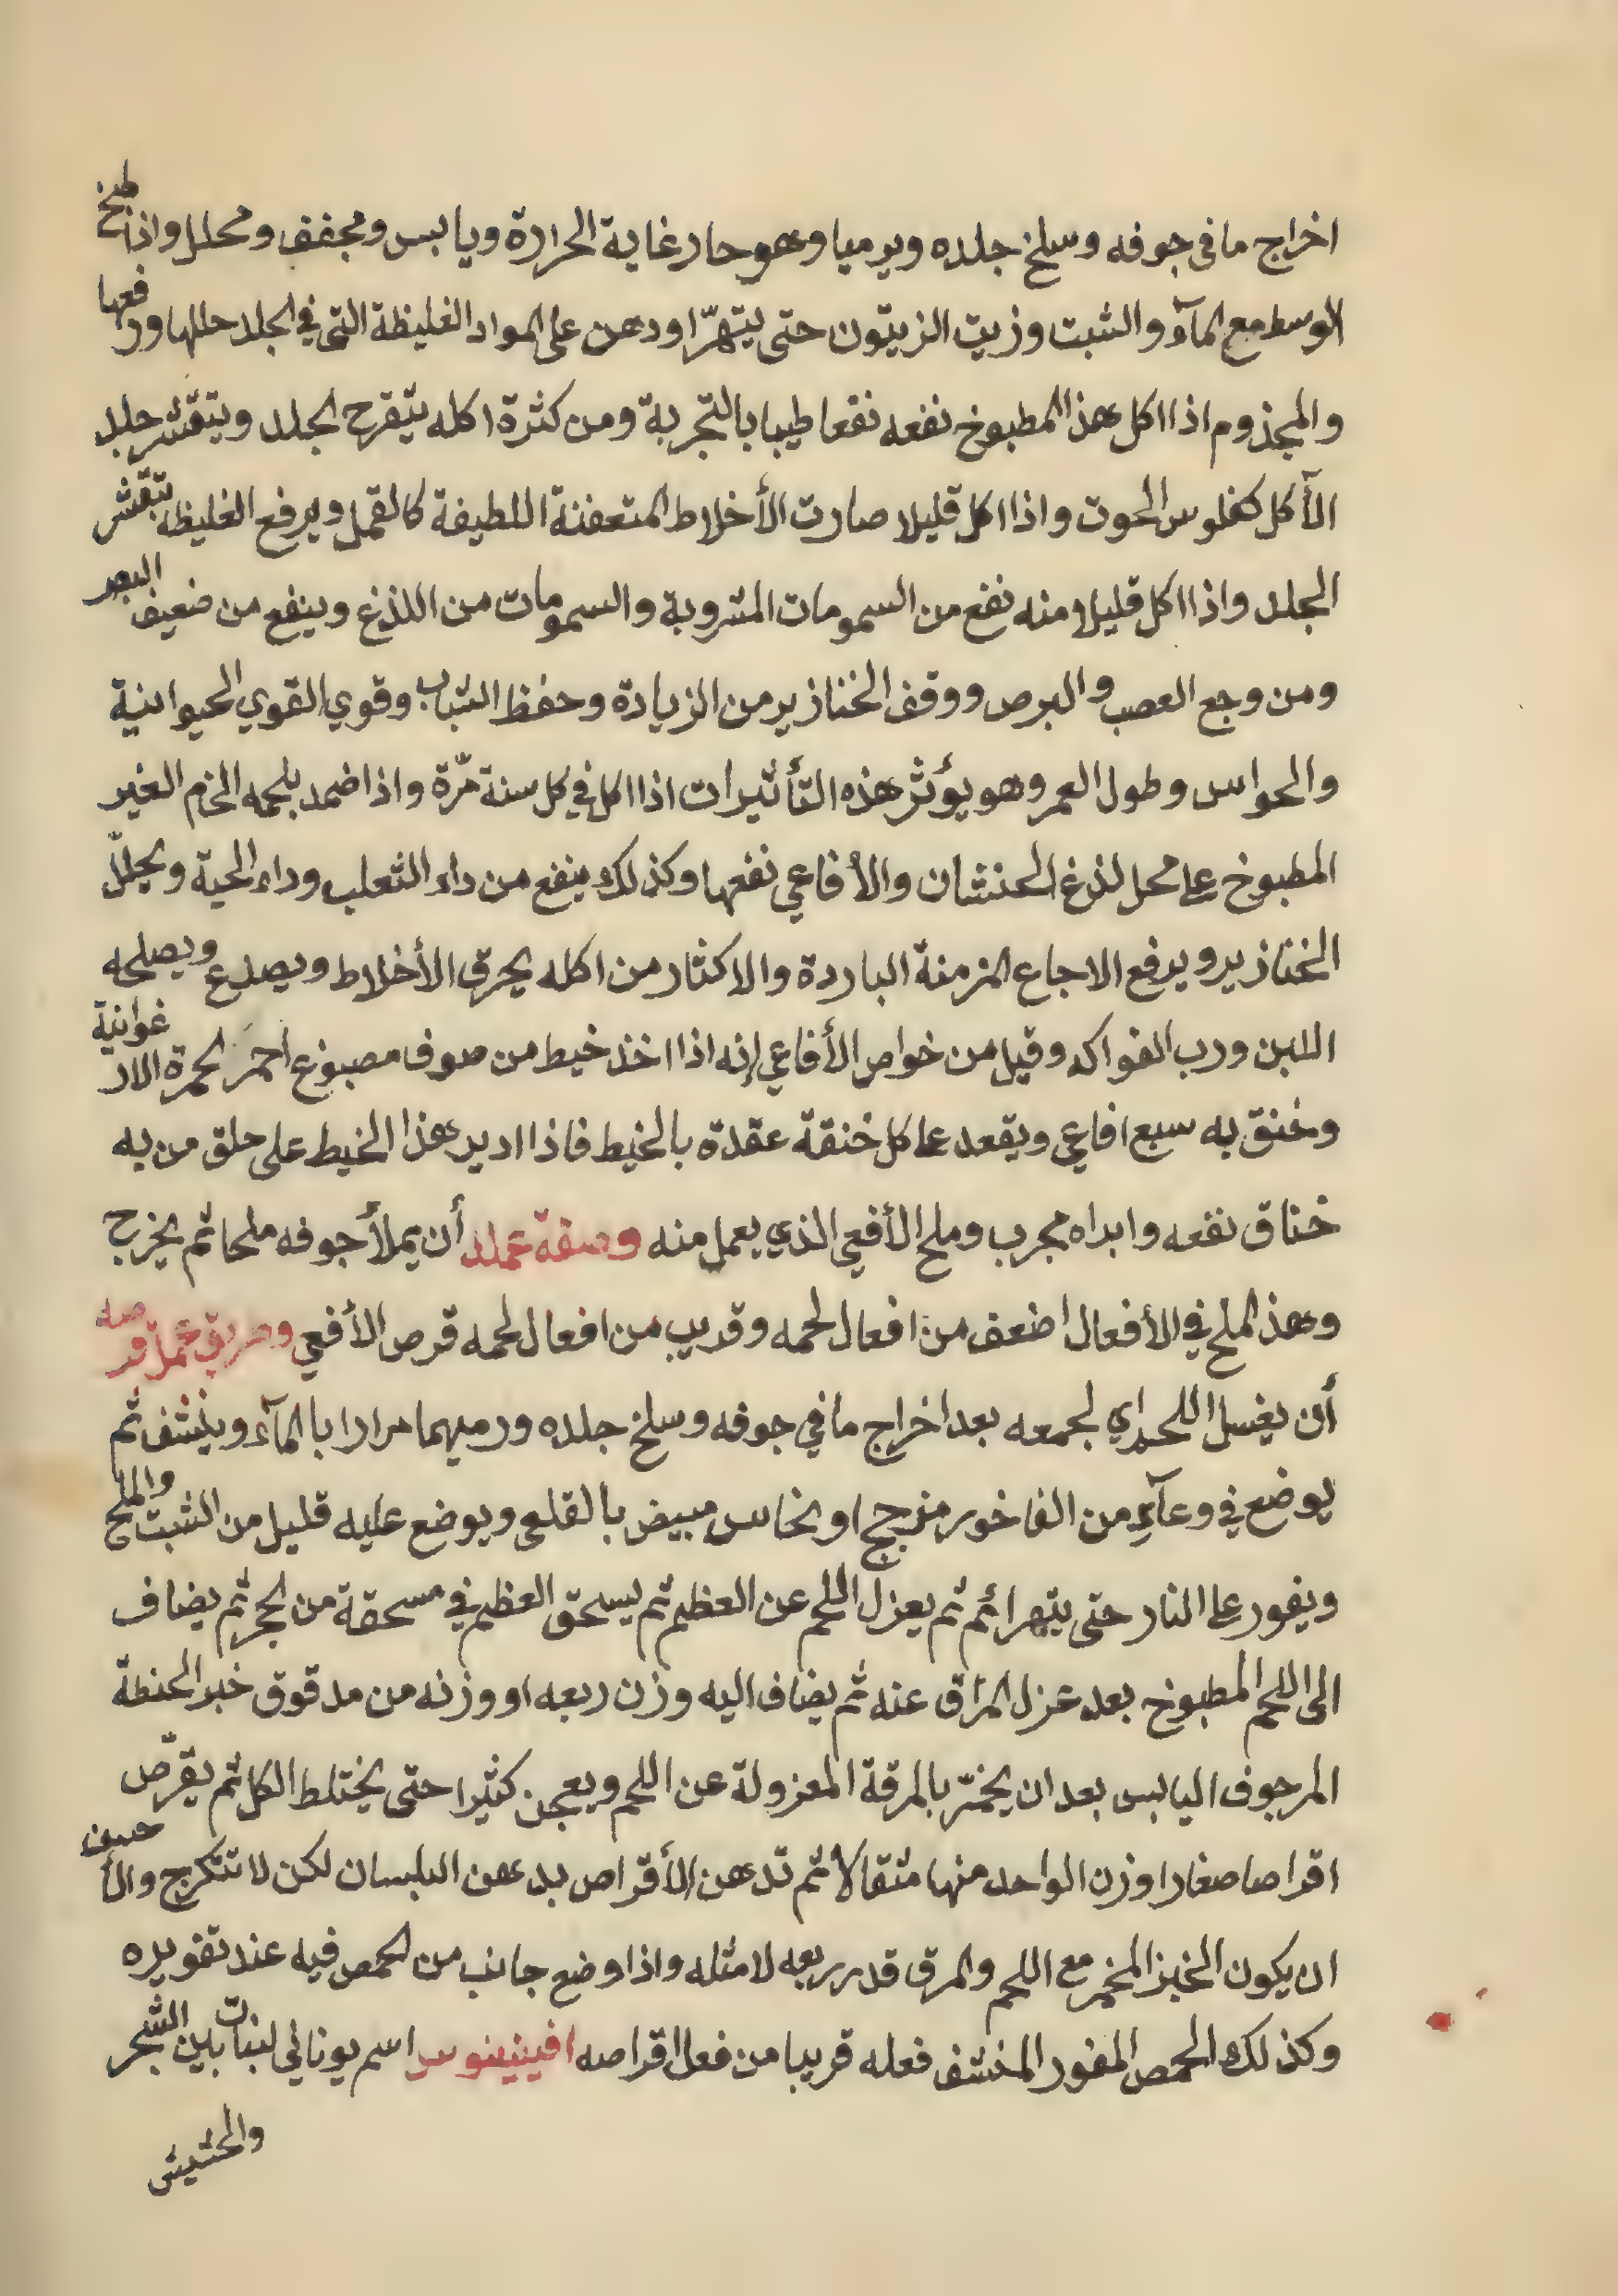 اخراج ما في جوفه وسلخ جلده ويرميا وهو حار غاية الحرارة ويابس ومجفف ومحلل واذا طبخ
الوسط مع المآء والشبت وزيت الزيتون حتى يتهرّا ودهن على المواد الغليظة التي في الجلد حللها ورفعها
والمجذوم اذا اكل هذا المطبوخ نفعه نفعا طيبا بالتجربة ومن كثرة اكله يتقرح الجلد ويتقشر جلد
الآكل كفلوس الحوت واذا اكل قليلا صارت الأخلاط المتعفنة اللطيفة كالقمل ويرفع الغليظه بتقشر
الجلد واذا اكل قليلا منه نفع من السمومات المشروبة والسمومات من اللذغ وينفع من ضعيف البصر
ومن وجع العصب والبرص ووقف الخنازير من الزيادة وحفظ الشباب وقوي القوي الحيوانية
والحواس وطول العمر وهو يؤثر هذه التأثيرات اذا اكل في كل سنة مرّة واذا ضمد بلحمه الخام الغير
المطبوخ على محل لذغ الحنشان والأفاعي نفعها وكذلك ينفع من داء الثعلب وداء الحية ويحللّ
الخنازير ويرفع الاجاع المزمنة الباردة والاكثار من اكله يحرق الأخلاط ويصدع ويصلحه
اللبن ورب الفواكه وقيل من خواص الأفاعي إنه اذا اخذ خيط من صوف مصبوغ احمر لحمرة الارغوانية
وخنق به سبع افاعي ويقعد على كل خنقة عقدة بالخيط فاذا ادير هذا الخيط على حلق من به
خناق نفعه وابراه مجرب وملح الأفعي الذي يعمل منه وصفة عمله أن يملأ جوفه ملحا ثم يخرج
وهذ الملح في الأفعال اضعف من افعال لحمه وقريب من افعال لحمه قرص الأفعي وطريق عمل قرصه
أن يغسل اللحم اي لجمعه بعد اخراج ما في جوفه وسلخ جلده ورميهما مرارا بالمآء وينشف ثم
يوضع في وعآء من الفاخور مزجج او نحاس مبيض بالقلعى ويوضع عليه قليل من الشبت والملح
ويفور على النار حتى يتهرا ثم ثم يعزل اللحم عن العظيم ثم يسحق العظيم في مسحقة من الحجر ثم يضاف
الى اللحم المطبوخ بعد عزل المرق عنه ثم يضاف اليه وزن ربعه او وزنه من مدقوق خبز الحنطة
المرجوف اليابس بعد ان يخمّر بالمرقة المعزولة عن اللحم ويعجن كثيرا حتى يختلط الكل ثم يقرّص
اقراصا صغارا وزن الواحد منها مثقالا ثم تدهن الأقراص بدهن البلسان لكن لا تتكرج والأحسن
ان يكون الخبز المخمر مع اللحم والمرق قدر ربعه لا مثله واذا وضع جانب من الحمص فيه عند تفويره
وكذلك الحمص المفور المنشف فعله قريبا من فعل اقراصه افيينوس اسم يوناني لنبات بين الشجر
والحشيش